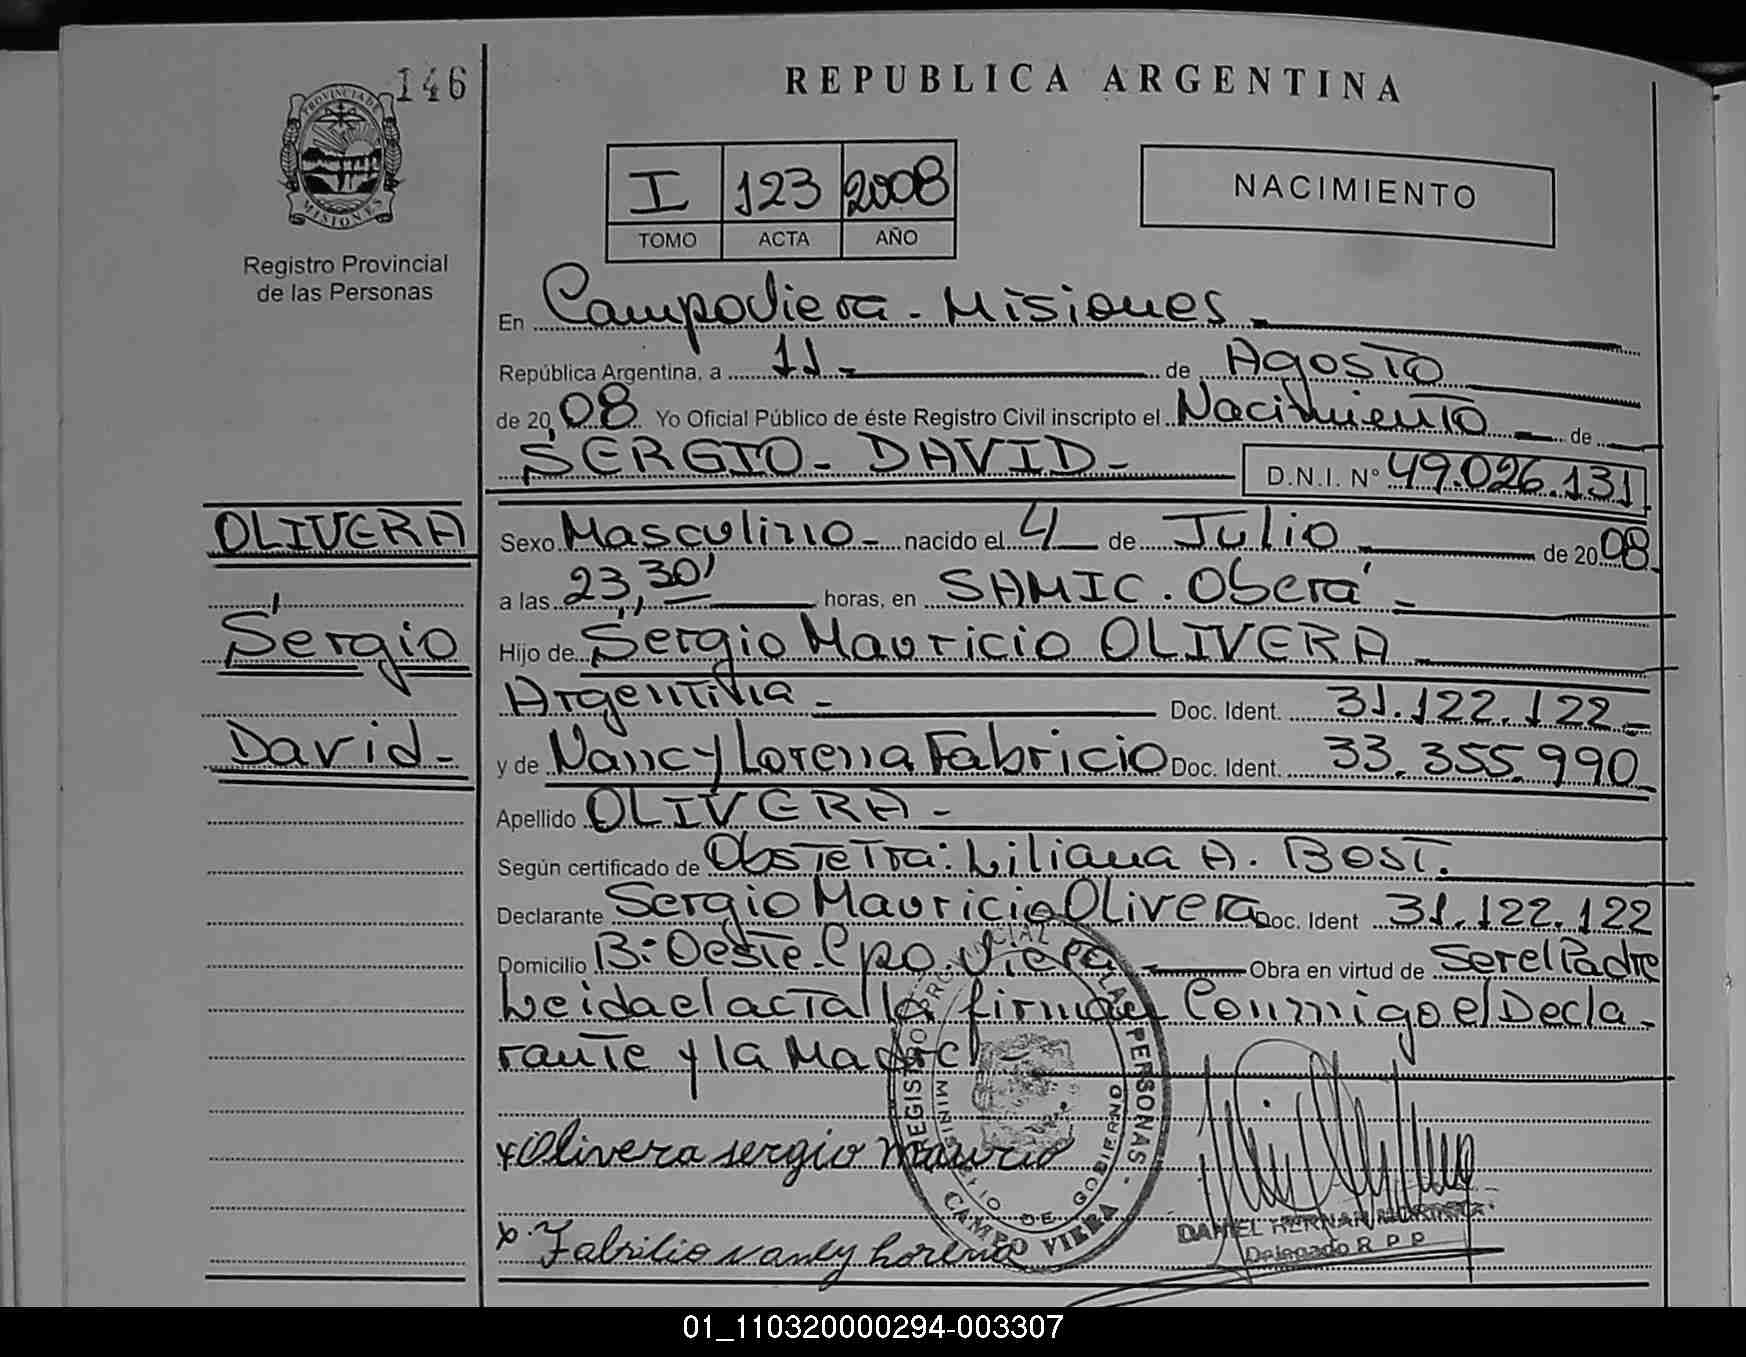 146
PROVINCIA DE
MISIONES
Registro Provincial
de las Personas
REPUBLICA ARGENTINA
I 123 2008
TOMO ACTA AÑO
NACIMIENTO
En Campo Viera - Misiones -
República Argentina, a 11 - de Agosto
de 2008 Yo Oficial Público de éste Registro Civil inscripto el Nacimiento - de
SERGIO - DAVID - D.N.I. Nº 49.026.131
OLIVERA
Sergio
David -
Sexo Masculino - nacido el 4 de Julio de 2008
a las 23,30' horas, en SAMIC. Oberá -
Hijo de Sergio Mauricio OLIVERA
Argentina - Doc. Ident. 31.122.122 -
y de Nancy Lorena Fabricio Doc. Ident. 33.355.990
Apellido OLIVERA -
Según certificado de Obstetra: Liliana A. BOST.
Declarante Sergio Mauricio Olivera Doc. Ident 31.122.122
Domicilio B: Oeste - Cpo Viera Obra en virtud de Ser el Padre
Leida el acta la firman Conmigo el Decla-
rante y la Madre -
REGISTRO PROVINCIAL DE LAS PERSONAS -
MINISTERIO DE GOBIERNO
CAMPO VIERA
x Olivera sergio Mauricio
x. Fabricio nancy lorena
DANIEL HERNAN
Delegado R P P
01_110320000294-003307